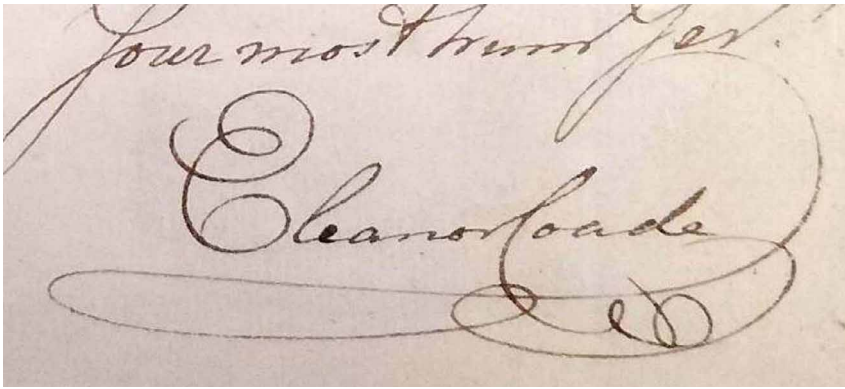 Your most hum Ser.
Eleanor Coade